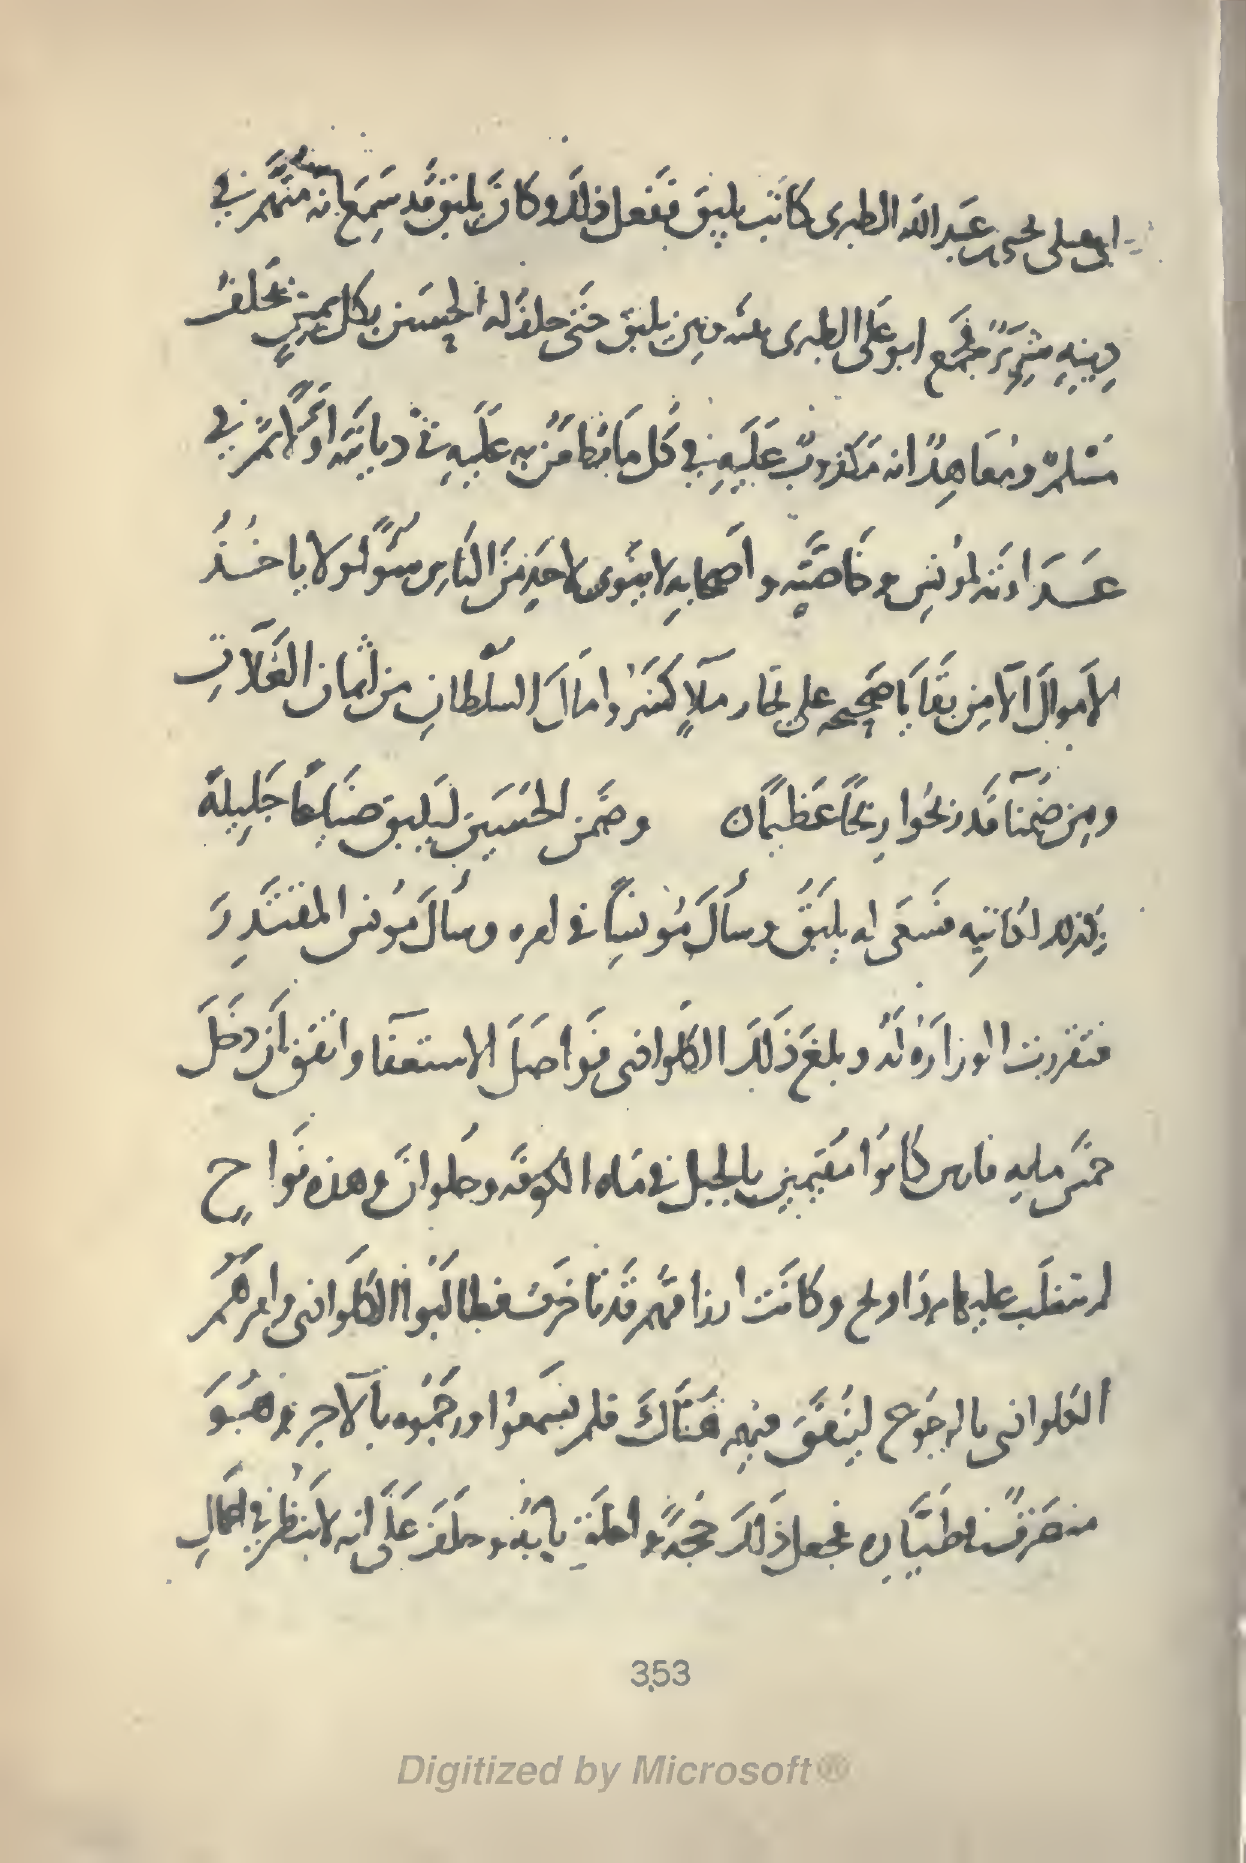 ابى على يحيى بن عبد الله الطبرى كاتب يلبق ففعل ذلك وكان يلبق قد سمع انه متهم في
دينه شرير فجمع ابو على الطبرى بينه وبين يلبق حتى حلف له الحسين بكل يمين يحلف
مسلم ومعاهد انه مكذوب عليه في كل ما طعن به عليه في ديانته اولا ثم في
عداوته لمؤنس وخاصته واصحابه لا ينوى لاحد من الناس سوا ولا ياخذ
الاموال الا من بقايا صحيحة على تجار ملا كسروا مال السلطان من اثمان الغلات
ومن ضمنا قد ربحوا ربحا عظيما ن وضمن الحسين ليلبق ضياعا جليلة
وكذلك لكاتبه فسعى له يلبق وسأل مؤنسا في امره وسأل مؤنس المقتدر
فتقررت الوزارة له وبلغ ذلك الكلواذى فواصل الاستعفا واتفق ان دخل
خمس مايه فارس كانوا مقيمين بالجبل في ماه الكوفه وحلوان وهذه نواح
لم تتغلب عليها مرداويج وكانت ارزاقهم قد تاخرت فطالبوا الكلواذى وامرهم
الكلواذى بالرجوع لينفق فيهم هناك فلم يسمعوا ورجموه بالآجر وهو
منصرف في طياره فجعل ذلك حجة واغلق بابه وحلف على انه لا ينظر في اعمال
353
Digitized by Microsoft®